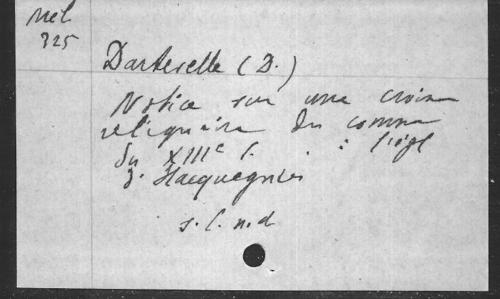 Mél
325
Darterelle (D.)
Notice sur une croix
reliquaire du comm
du XIIIe s.
d. Hacquegnies
s. l. n. d